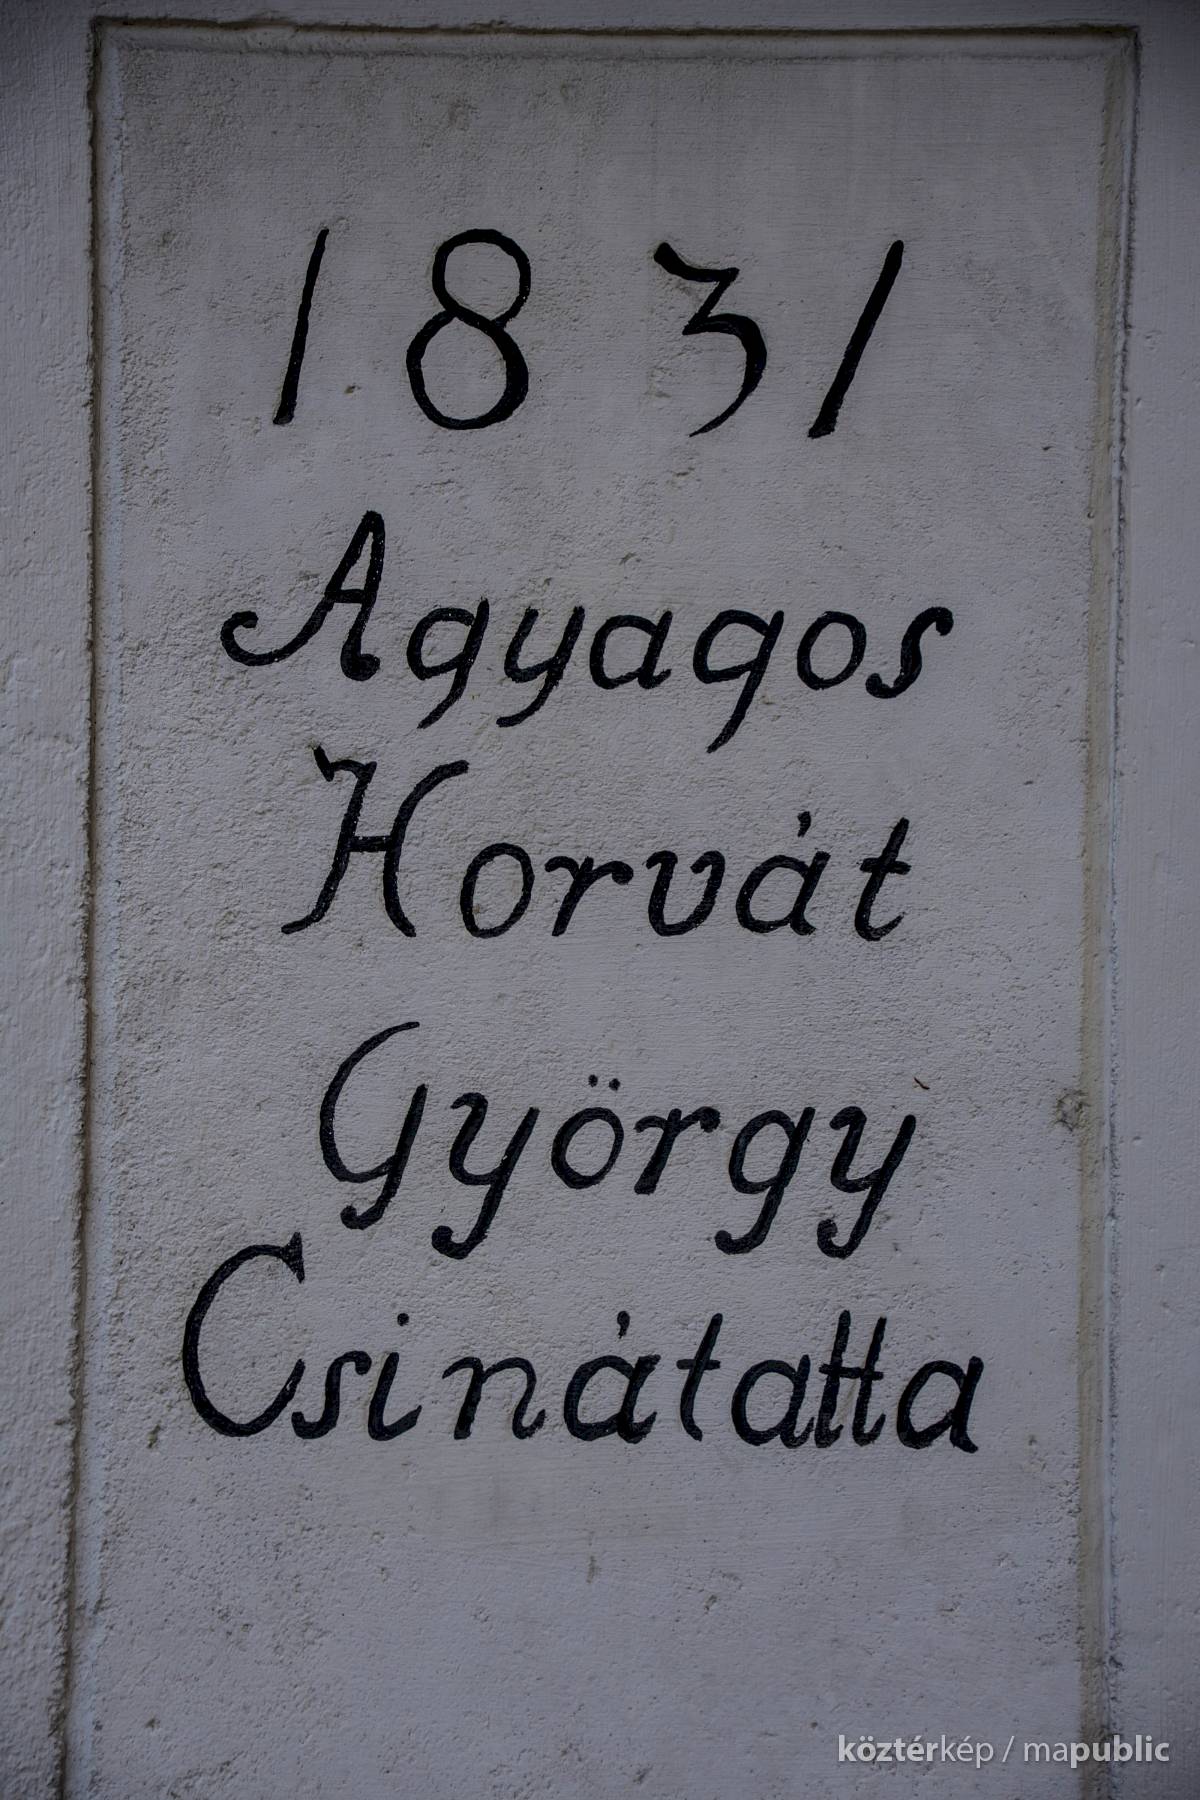 1831
Agyagos
Horvát
György
Csinátatta
köztérkép / mapublic